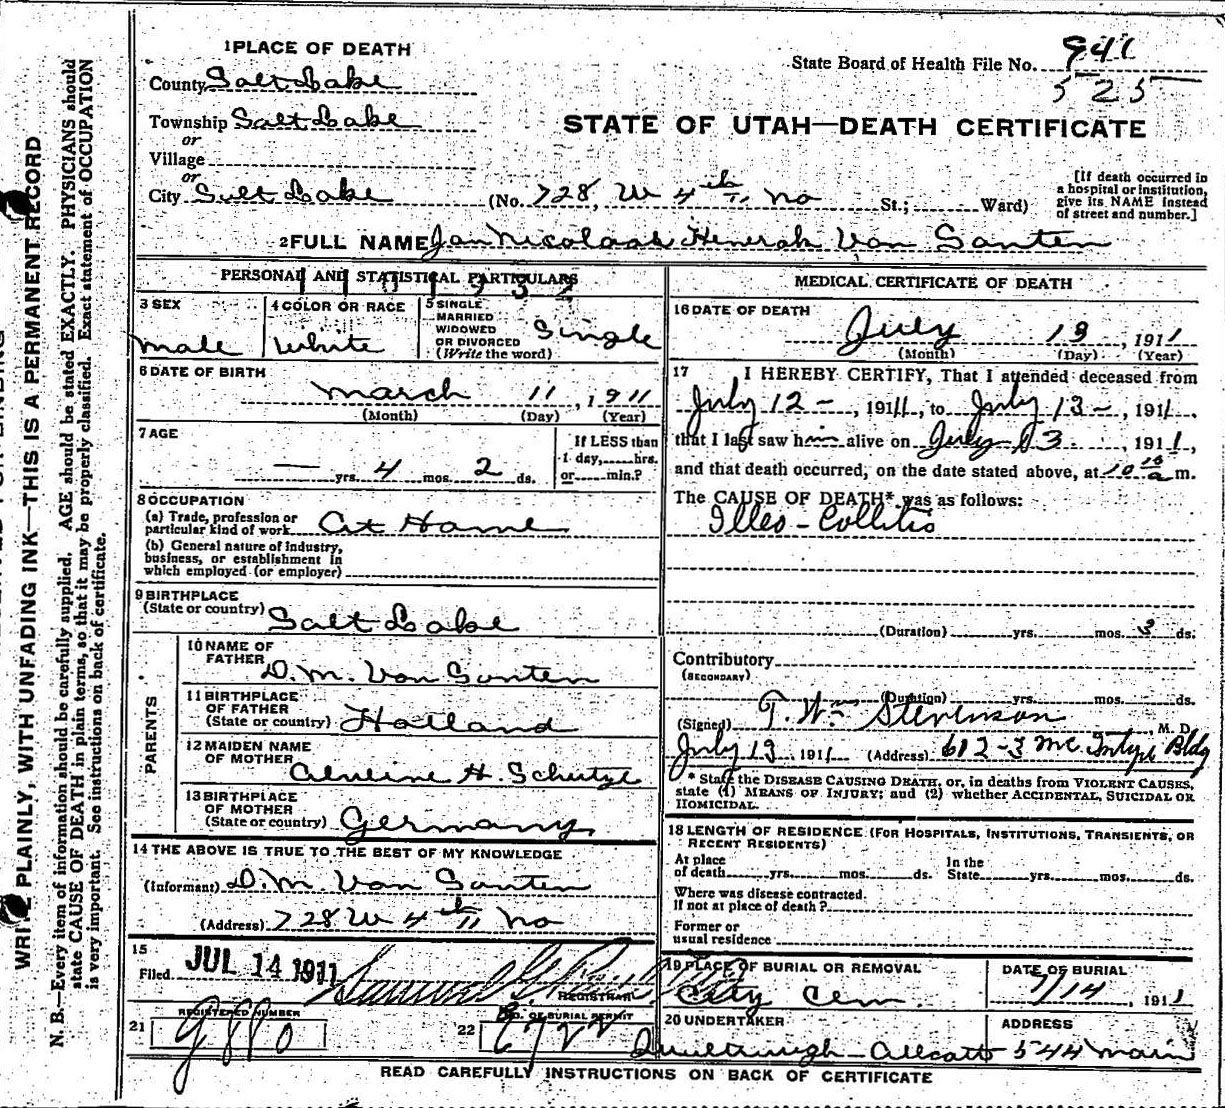 1 PLACE OF DEATH
County Salt Lake
State Board of Health File No. 941
525
Township Salt Lake
STATE OF UTAH—DEATH CERTIFICATE
or
Village
or
City Salt Lake (No. 728, W 4th No St.; Ward)
[If death occurred in
a hospital or institution,
give its NAME instead
of street and number.]
2 FULL NAME Jan Nicolaas Henrak Van Santen
PERSONAL AND STATISTICAL PARTICULARS
3 SEX
male
4 COLOR OR RACE
White
5 SINGLE
MARRIED
WIDOWED
OR DIVORCED
(Write the word)
Single
6 DATE OF BIRTH
March 11, 1911
(Month) (Day) (Year)
7 AGE
— yrs. 4 mos. 2 ds.
If LESS than
1 day, hrs.
or min.?
8 OCCUPATION
(a) Trade, profession or
particular kind of work At Home
(b) General nature of industry,
business, or establishment in
which employed (or employer)
9 BIRTHPLACE
(State or country) Salt Lake
PARENTS
10 NAME OF
FATHER
D. M. Van Santen
11 BIRTHPLACE
OF FATHER
(State or country) Holland
12 MAIDEN NAME
OF MOTHER
H. Schutze
13 BIRTHPLACE
OF MOTHER
(State or country) Germany
14 THE ABOVE IS TRUE TO THE BEST OF MY KNOWLEDGE
(Informant) D. M. Van Santen
(Address) 728 W 4th No
15
Filed JUL 14 1911
REGISTRAR
REGISTERED NUMBER
21 9880
NO. OF BURIAL PERMIT
22 6722
MEDICAL CERTIFICATE OF DEATH
16 DATE OF DEATH
July 13, 1911
(Month) (Day) (Year)
17 I HEREBY CERTIFY, That I attended deceased from
July 12 -, 1911, to July 13 -, 1911,
that I last saw him alive on July 13, 1911,
and that death occurred, on the date stated above, at 10 10 a m.
The CAUSE OF DEATH* was as follows:
Illeo - Collitis
(Duration) yrs. mos. 3 ds.
Contributory
(SECONDARY)
(Duration) yrs. mos. ds.
(Signed) T. Wm Stevenson, M. D.
July 13, 1911 (Address) 612-3 Mc Intyre Bldg
* State the DISEASE CAUSING DEATH, or, in deaths from VIOLENT CAUSES,
state (1) MEANS OF INJURY; and (2) whether ACCIDENTAL, SUICIDAL OR
HOMICIDAL.
18 LENGTH OF RESIDENCE (FOR HOSPITALS, INSTITUTIONS, TRANSIENTS, OR
RECENT RESIDENTS)
At place
of death yrs. mos. ds.
In the
State yrs. mos. ds.
Where was disease contracted.
If not at place of death?
Former or
usual residence
19 PLACE OF BURIAL OR REMOVAL
City Cem.
DATE OF BURIAL
7/14, 1911
20 UNDERTAKER
ADDRESS
544 Main
READ CAREFULLY INSTRUCTIONS ON BACK OF CERTIFICATE
WRITE PLAINLY, WITH UNFADING INK—THIS IS A PERMANENT RECORD
N. B.—Every item of information should be carefully supplied. AGE should be stated EXACTLY. PHYSICIANS should
state CAUSE OF DEATH in plain terms, so that it may be properly classified. Exact statement of OCCUPATION
is very important. See instructions on back of certificate.